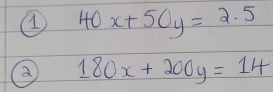 ① 40x + 50y = 2.5
② 180x + 200y = 14